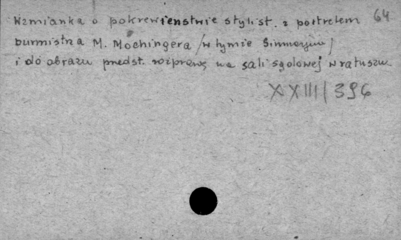 Wzmianka o pokrewieństwie stylist. z portretem 64
burmistrza M. Mochingera /w tymie
i do obrazu predst. rozprawę na sali sądowej w ratuszu
XXIII/396